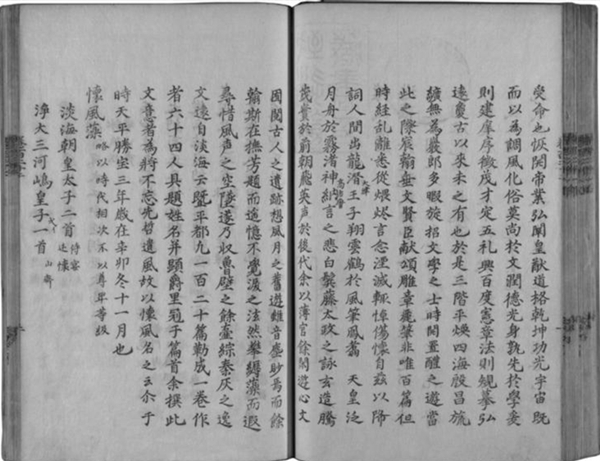 受命也恢開帝業弘闡皇猷道格乾坤功光宇宙既
而以為調風化俗莫尚於文潤德光身孰先於學爰
則建庠序徵茂才定五礼興百度憲章法則規摹弘
遠夐古以來未之有也於是三階平煥四海殷昌旒
纊無為巖郎多暇旋招文學之士時開置醴之遊當
此之際宸翰垂文賢臣献頌雕章麗筆非唯百篇但
時經乱離悉從煨燼言念湮滅輙悼傷懷自茲以降
詞人間出龍潛王子翔雲鶴於風筆鳳翥 天皇泛
大津
月舟於霧渚神納言之悲白鬢藤太政之詠玄造騰
高市麿
茂實於前朝飛英声於後代余以薄官餘閑遊心文
囿閱古人之遺跡想風月之舊遊雖音塵眇焉而餘
翰斯在撫芳題而遥憶不覺淚之泫然攀縟藻而遐
尋惜風声之空墜遂乃収魯壁之餘蠹綜秦灰之逸
文遠自淡海云曁平都凡一百二十篇勒成一卷作
者六十四人具題姓名并顕爵里冠于篇首余撰此
文意者為將不忘先哲遺風故以懷風名之云尒于
時天平勝宝三年歳在辛卯冬十一月也
懷風藻 略以時代相次不以尊卑等級
淡海朝皇太子二首 侍宴 述懷
淨大三河嶋皇子一首 山齋